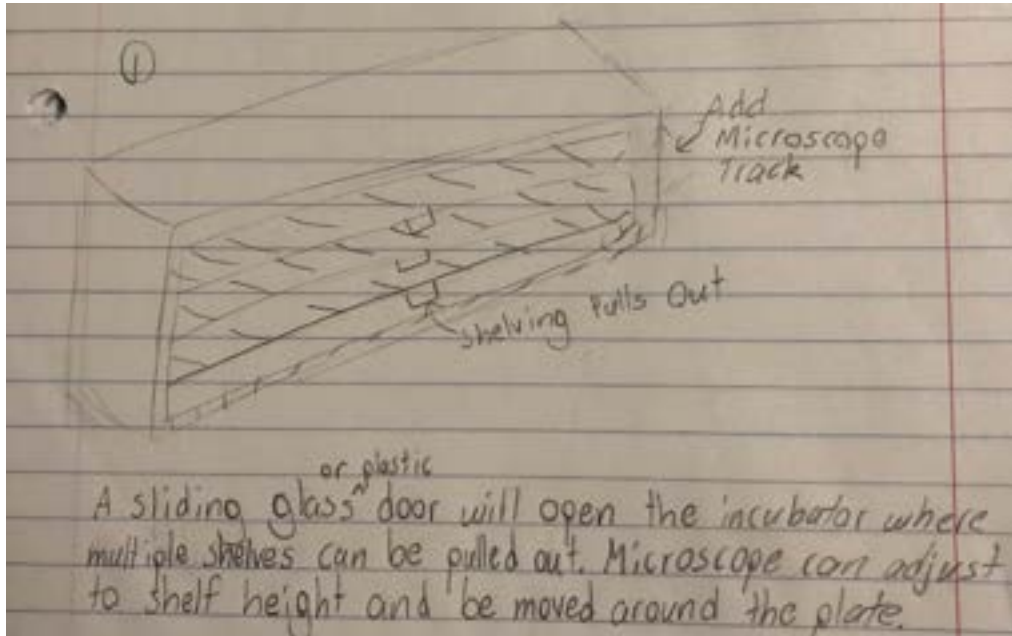 1
Add
Microscope
Track
Shelving Pulls Out
or plastic
A sliding glass ^ door will open the incubator where
multiple shelves can be pulled out. Microscope can adjust
to shelf height and be moved around the plate.